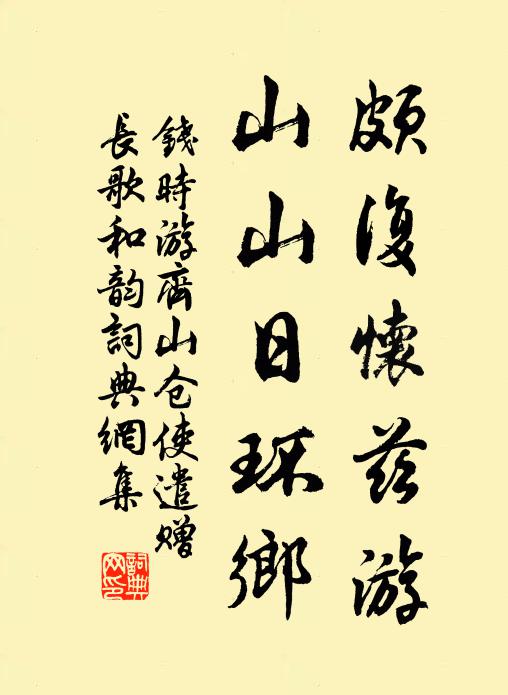 頗復懷茲游
山山日环鄉
錢時游齊山仓使遣赠
長歌和韵詞典網集
詞典网印